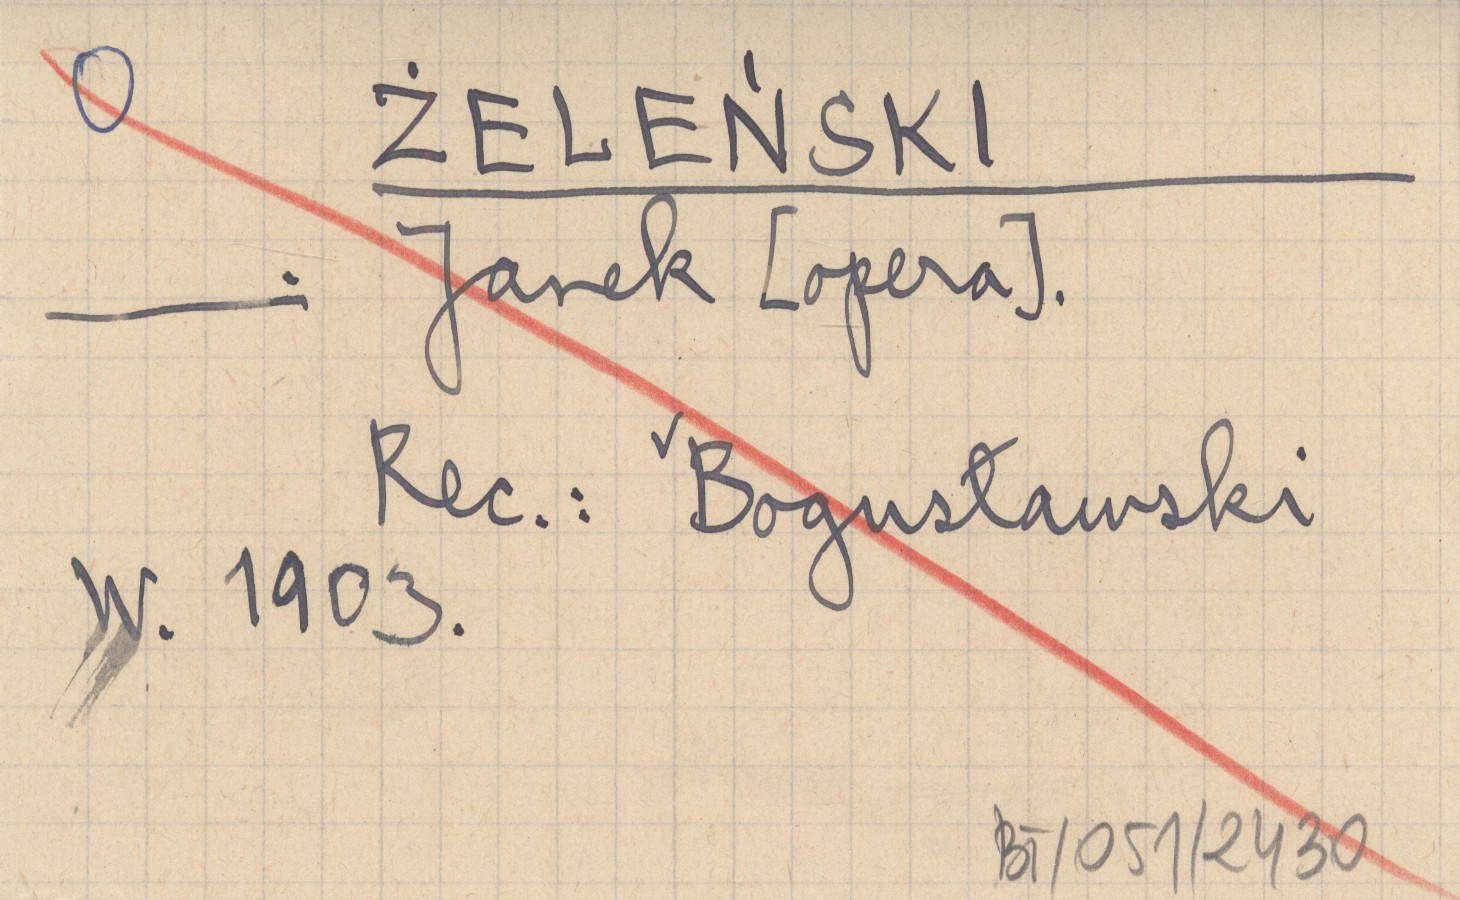 ŻELEŃSKI
———: Janek [opera].
Rec.: ✓Bogusławski
W. 1903.
BT/051/2430